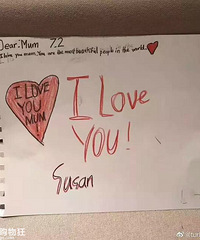 Dear:Mum 7.2
I love you mum. You are the most beautiful people in the world.
I LOVE
YOU
MUM
I Love
YOU!
Susan
购物狂